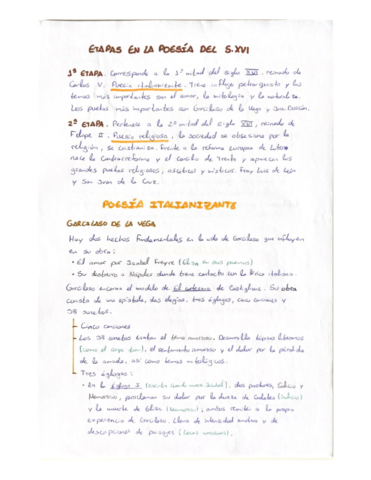 ETAPAS EN LA POESÍA DEL S.XVI
1ª ETAPA. Corresponde a la 1ª mitad del siglo XVI, reinado de
Carlos V. Poesía italianizante. Tiene influjo petrarquista y los
temas más importantes son el amor, la mitología y la naturaleza.
Los poetas más importantes son Garcilaso de la Vega y Juan Boscán.
2ª ETAPA. Pertenece a la 2ª mitad del siglo XVI, reinado de
Felipe II. Poesía religiosa. la sociedad se obsesiona por la
religión, se cristianiza. Frente a la reforma europea de Lutero
nace la Contrarreforma y el concilio de Trento y aparecen los
grandes poetas religiosos, ascéticos y místicos. Fray Luis de León
y San Juan de la Cruz.
POESÍA ITALIANIZANTE
GARCILASO DE LA VEGA
Hay dos hechos fundamentales en la vida de Garcilaso que influyen
en su obra:
• El amor por Isabel Freyre (Elisa en sus poemas)
• Su destierro a Nápoles donde tiene contacto con la lírica italiana.
Garcilaso encarna el modelo de El cortesano de Castiglione. Su obra
consta de una epístola, dos elegías, tres églogas, cinco canciones y
38 sonetos.
Cinco canciones
Los 38 sonetos tratan el tema amoroso. Desarrolla tópicos literarios
(como el carpe diem), el sentimiento amoroso y el dolor por la pérdida
de la amada, así como temas mitológicos.
Tres églogas:
• En la Égloga I (escrita cuando muere Isabel), dos pastores, Salicio y
Nemoroso, proclaman su dolor por la dureza de Galatea (Salicio)
y la muerte de Elisa (Nemoroso); ambos remiten a la propia
experiencia de Garcilaso. Clima de intensidad anímica y de
descripciones de paisajes (locus amoenus).